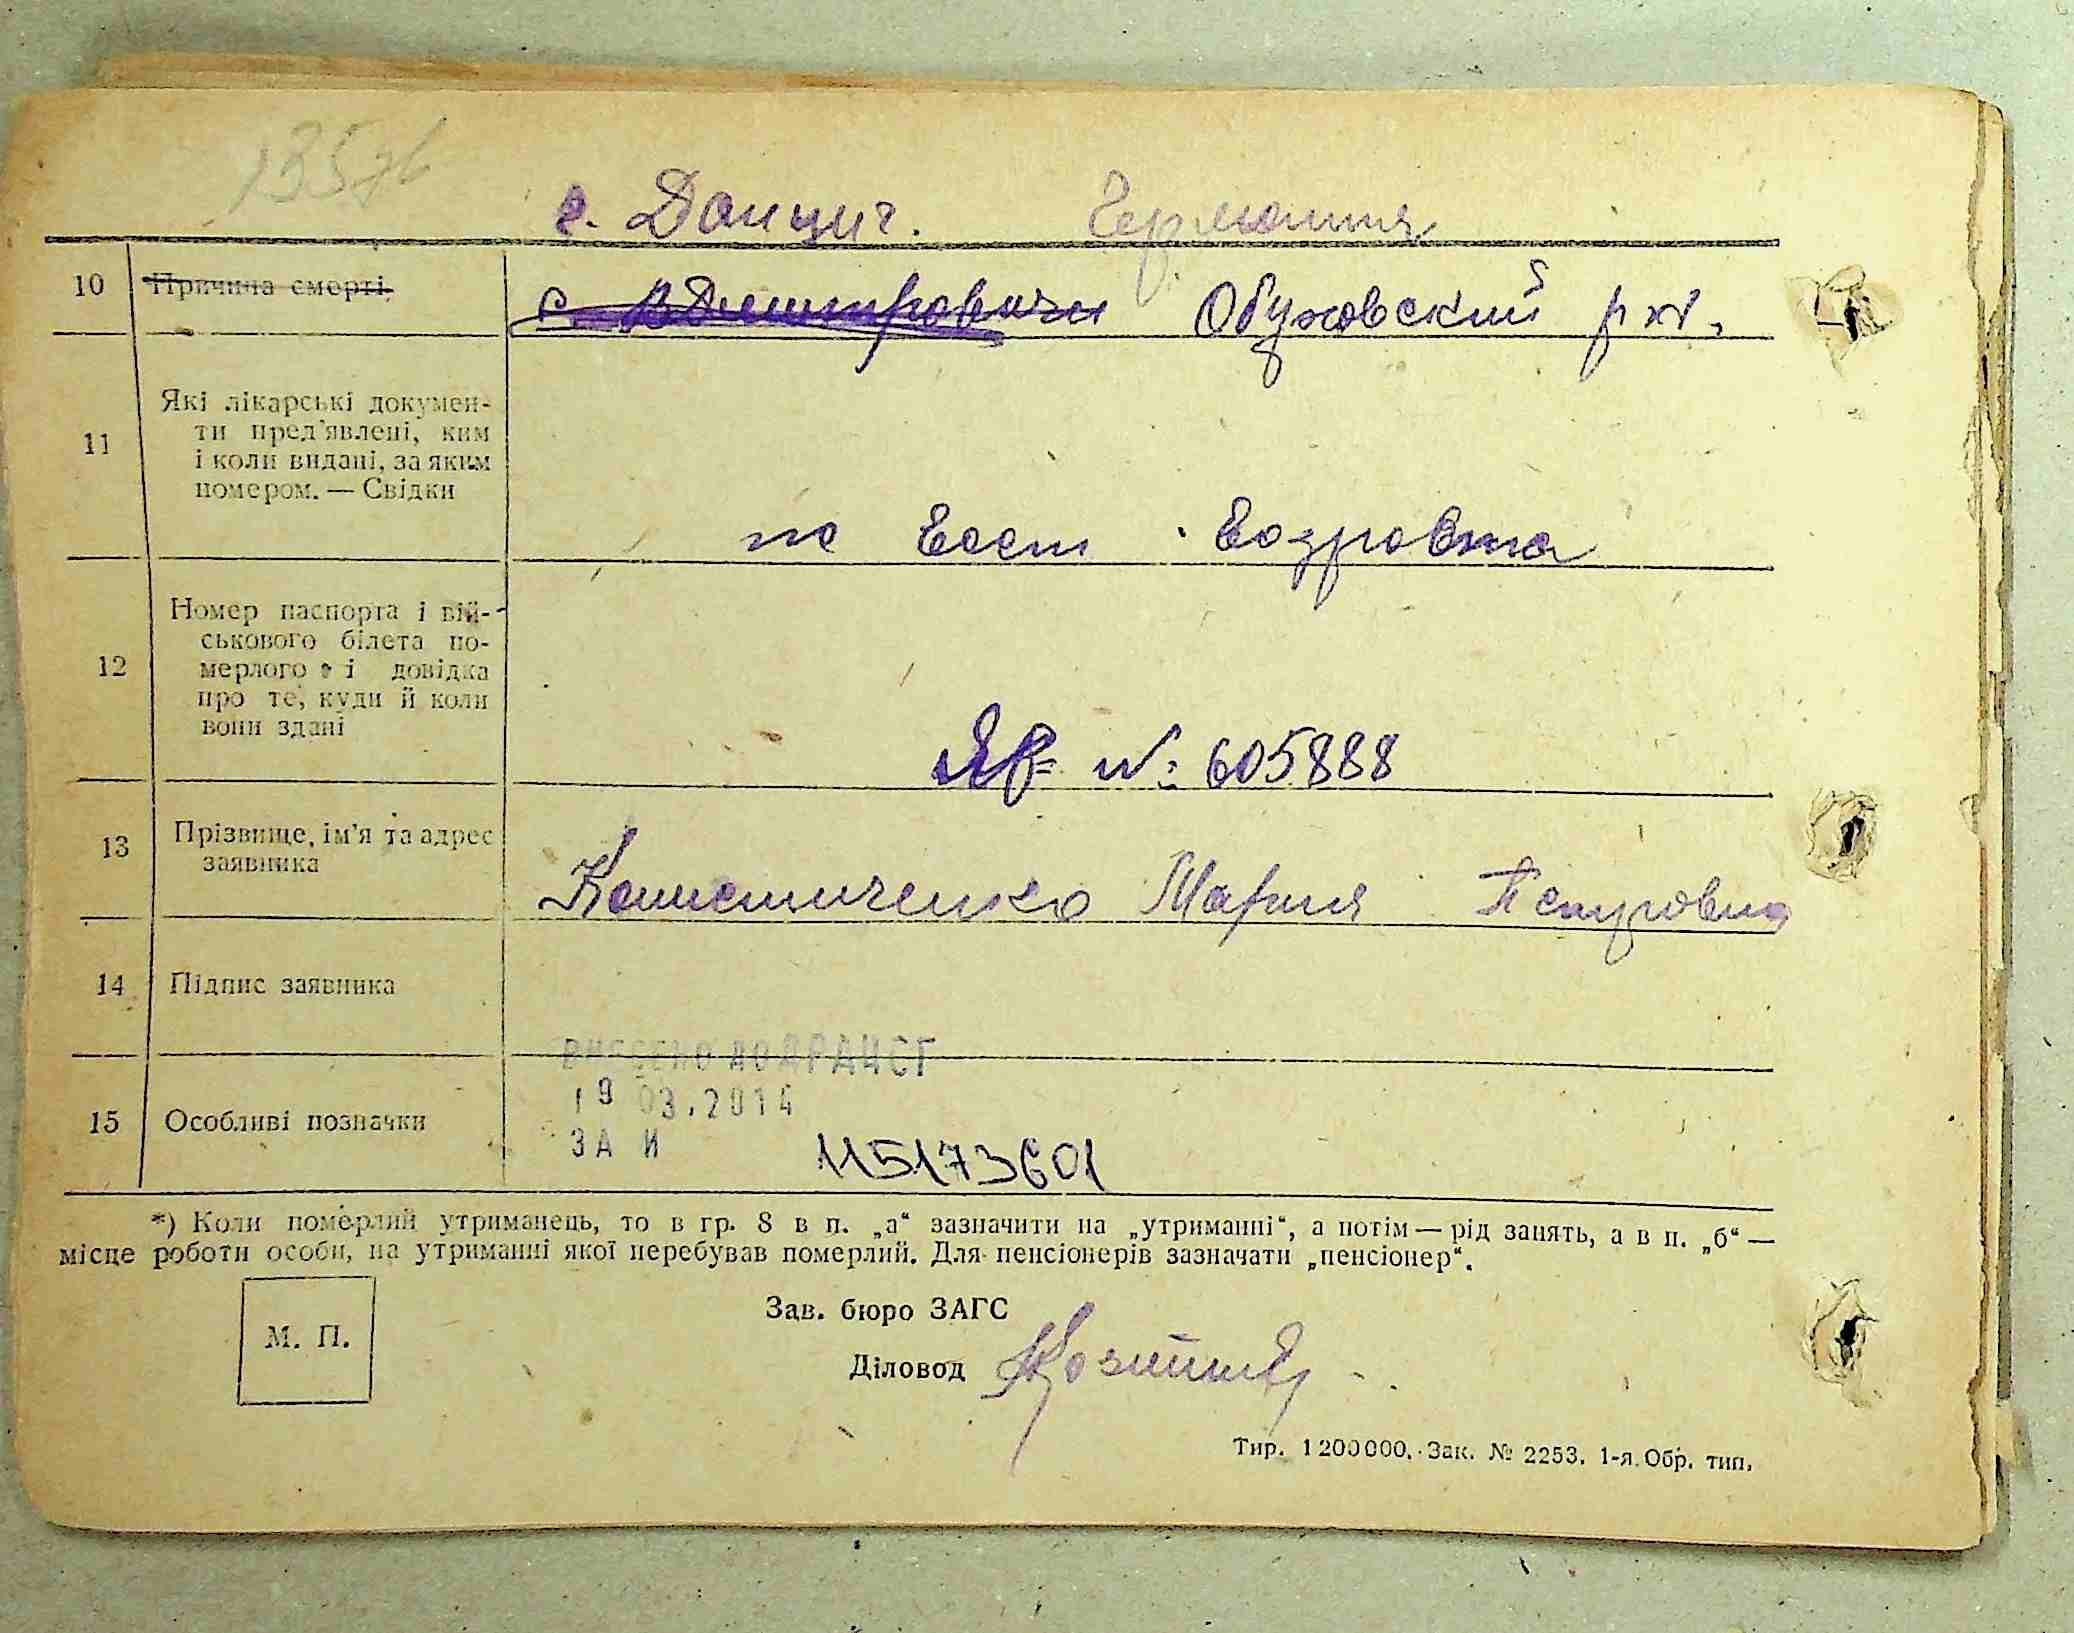 г. Данциг. Германия
10 Причина смерті
с. Вдмитровичи Обуховский р-н.
11 Які лікарські докумен-
ти пред'явлені, ким
і коли видані, за яким
номером. — Свідки
по
12 Номер паспорта і вій-
ськового білета по-
мерлого і довідка
про те, куди й коли
вони здані
№ 605888
13 Прізвище, ім'я та адрес
заявника
Мария Петровна
14 Підпис заявника
ВНЕСЕНО ДО ДРАЦСГ
19 03.2014
15 Особливі позначки
ЗА И 115173601
*) Коли померлий утриманець, то в гр. 8 в п. „а“ зазначити на „утриманні“, а потім — рід занять, а в п. „б“ —
місце роботи особи, на утриманні якої перебував померлий. Для пенсіонерів зазначати „пенсіонер“.
Зав. бюро ЗАГС
М. П.
Діловод
Тир. 1200000. Зак. № 2253. 1-я. Обр. тип.